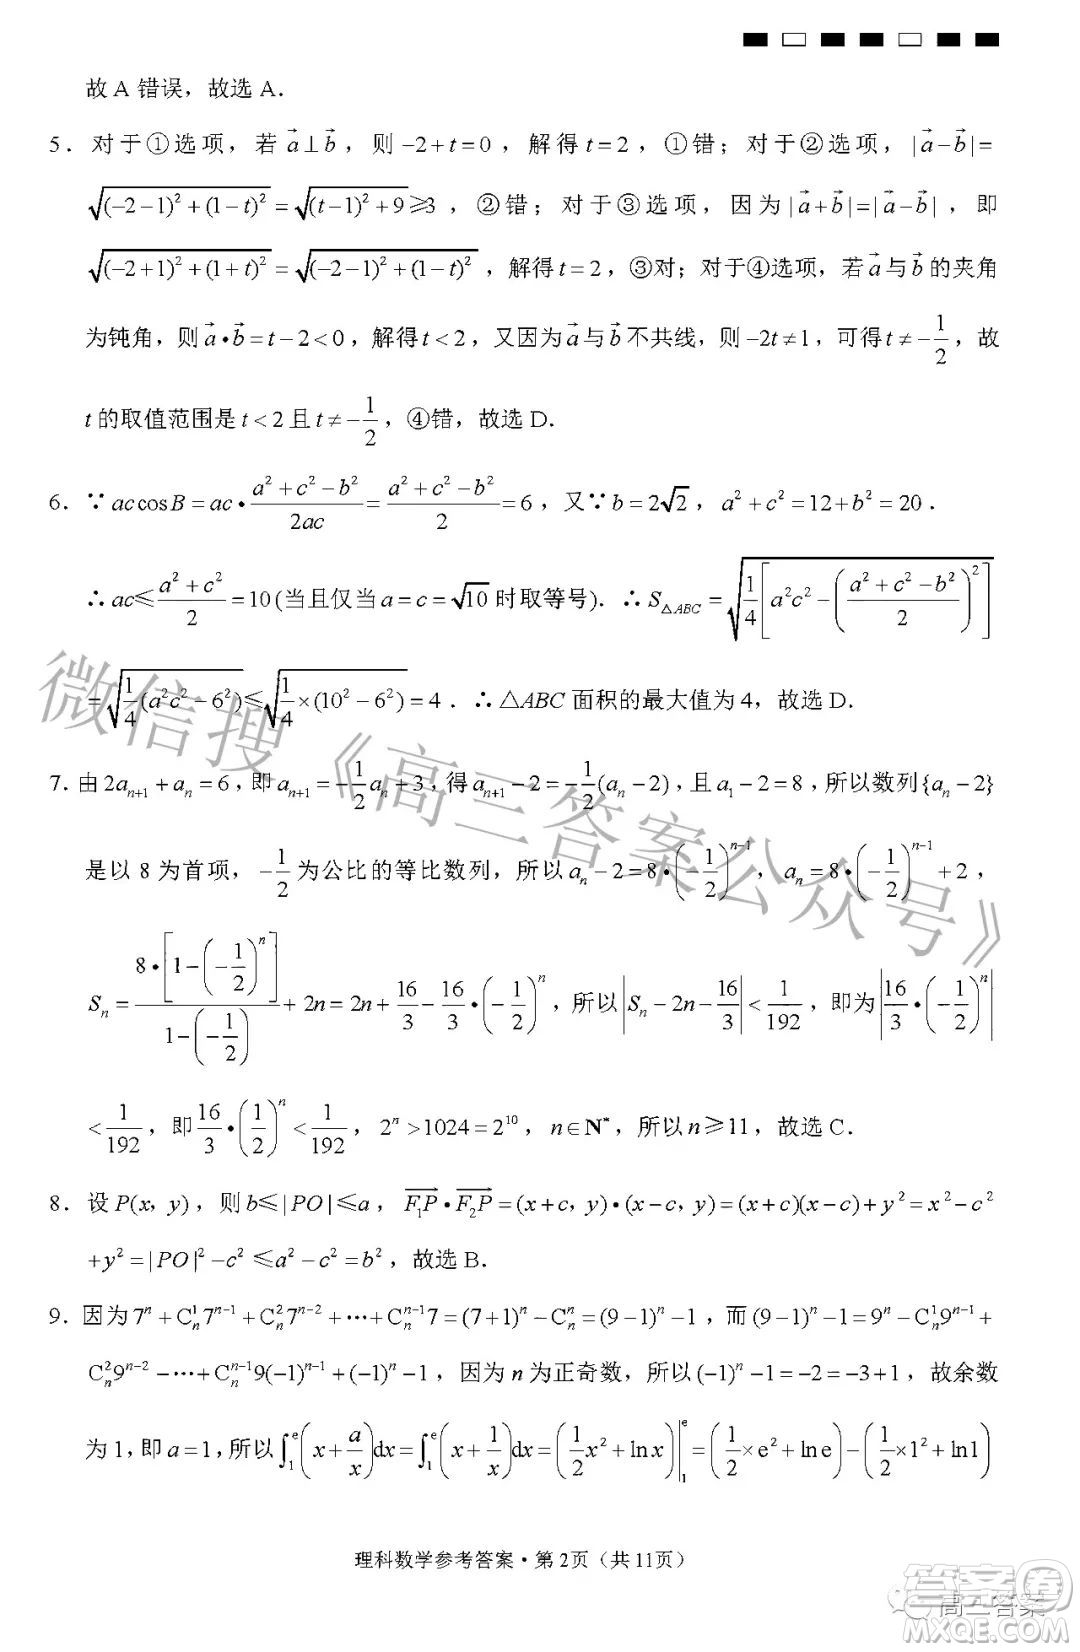 故 A 错误，故选 A．
5．对于①选项，若 $\vec{a} \perp \vec{b}$，则 $-2+t=0$，解得 $t=2$，①错；对于②选项，$|\vec{a}-\vec{b}|=$
$\sqrt{(-2-1)^2+(1-t)^2}=\sqrt{(t-1)^2+9} \geqslant 3$，②错；对于③选项，因为 $|\vec{a}+\vec{b}|=|\vec{a}-\vec{b}|$，即
$\sqrt{(-2+1)^2+(1+t)^2}=\sqrt{(-2-1)^2+(1-t)^2}$，解得 $t=2$，③对；对于④选项，若 $\vec{a}$ 与 $\vec{b}$ 的夹角
为钝角，则 $\vec{a} \bullet \vec{b}=t-2<0$，解得 $t<2$，又因为 $\vec{a}$ 与 $\vec{b}$ 不共线，则 $-2t \neq 1$，可得 $t \neq -\frac{1}{2}$，故
$t$ 的取值范围是 $t<2$ 且 $t \neq -\frac{1}{2}$，④错，故选 D．
6．∵ $ac\cos B=ac \bullet \frac{a^2+c^2-b^2}{2ac}=\frac{a^2+c^2-b^2}{2}=6$，又∵ $b=2\sqrt{2}$，$a^2+c^2=12+b^2=20$．
∴ $ac \leqslant \frac{a^2+c^2}{2}=10$ (当且仅当 $a=c=\sqrt{10}$ 时取等号)．∴ $S_{\triangle ABC}=\sqrt{\frac{1}{4}\left[a^2c^2-\left(\frac{a^2+c^2-b^2}{2}\right)^2\right]}$
$=\sqrt{\frac{1}{4}(a^2c^2-6^2)} \leqslant \sqrt{\frac{1}{4} \times (10^2-6^2)}=4$．∴ $\triangle ABC$ 面积的最大值为 4，故选 D．
7．由 $2a_{n+1}+a_n=6$，即 $a_{n+1}=-\frac{1}{2}a_n+3$，得 $a_{n+1}-2=-\frac{1}{2}(a_n-2)$，且 $a_1-2=8$，所以数列 $\{a_n-2\}$
是以 8 为首项，$-\frac{1}{2}$ 为公比的等比数列，所以 $a_n-2=8 \bullet \left(-\frac{1}{2}\right)^{n-1}$，$a_n=8 \bullet \left(-\frac{1}{2}\right)^{n-1}+2$，
$S_n=\frac{8 \bullet \left[1-\left(-\frac{1}{2}\right)^n\right]}{1-\left(-\frac{1}{2}\right)}+2n=2n+\frac{16}{3}-\frac{16}{3} \bullet \left(-\frac{1}{2}\right)^n$，所以 $\left|S_n-2n-\frac{16}{3}\right|<\frac{1}{192}$，即为 $\left|\frac{16}{3} \bullet \left(-\frac{1}{2}\right)^n\right|$
$<\frac{1}{192}$，即 $\frac{16}{3} \bullet \left(\frac{1}{2}\right)^n<\frac{1}{192}$，$2^n>1024=2^{10}$，$n \in \mathbf{N}^*$，所以 $n \geqslant 11$，故选 C．
8．设 $P(x, y)$，则 $b \leqslant |PO| \leqslant a$，$\overrightarrow{F_1P} \bullet \overrightarrow{F_2P}=(x+c, y) \bullet (x-c, y)=(x+c)(x-c)+y^2=x^2-c^2$
$+y^2=|PO|^2-c^2 \leqslant a^2-c^2=b^2$，故选 B．
9．因为 $7^n+\mathrm{C}_n^1 7^{n-1}+\mathrm{C}_n^2 7^{n-2}+\cdots+\mathrm{C}_n^{n-1}7=(7+1)^n-\mathrm{C}_n^n=(9-1)^n-1$，而 $(9-1)^n-1=9^n-\mathrm{C}_n^1 9^{n-1}+$
$\mathrm{C}_n^2 9^{n-2}-\cdots+\mathrm{C}_n^{n-1}9(-1)^{n-1}+(-1)^n-1$，因为 $n$ 为正奇数，所以 $(-1)^n-1=-2=-3+1$，故余数
为 1，即 $a=1$，所以 $\int_1^{\mathrm{e}}\left(x+\frac{a}{x}\right)\mathrm{d}x=\int_1^{\mathrm{e}}\left(x+\frac{1}{x}\right)\mathrm{d}x=\left(\frac{1}{2}x^2+\ln x\right)\Big|_1^{\mathrm{e}}=\left(\frac{1}{2} \times \mathrm{e}^2+\ln \mathrm{e}\right)-\left(\frac{1}{2} \times 1^2+\ln 1\right)$
理科数学参考答案·第 2页（共 11页）
微信搜《高三答案公众号》
高三答案
答案圈
MXQE.COM